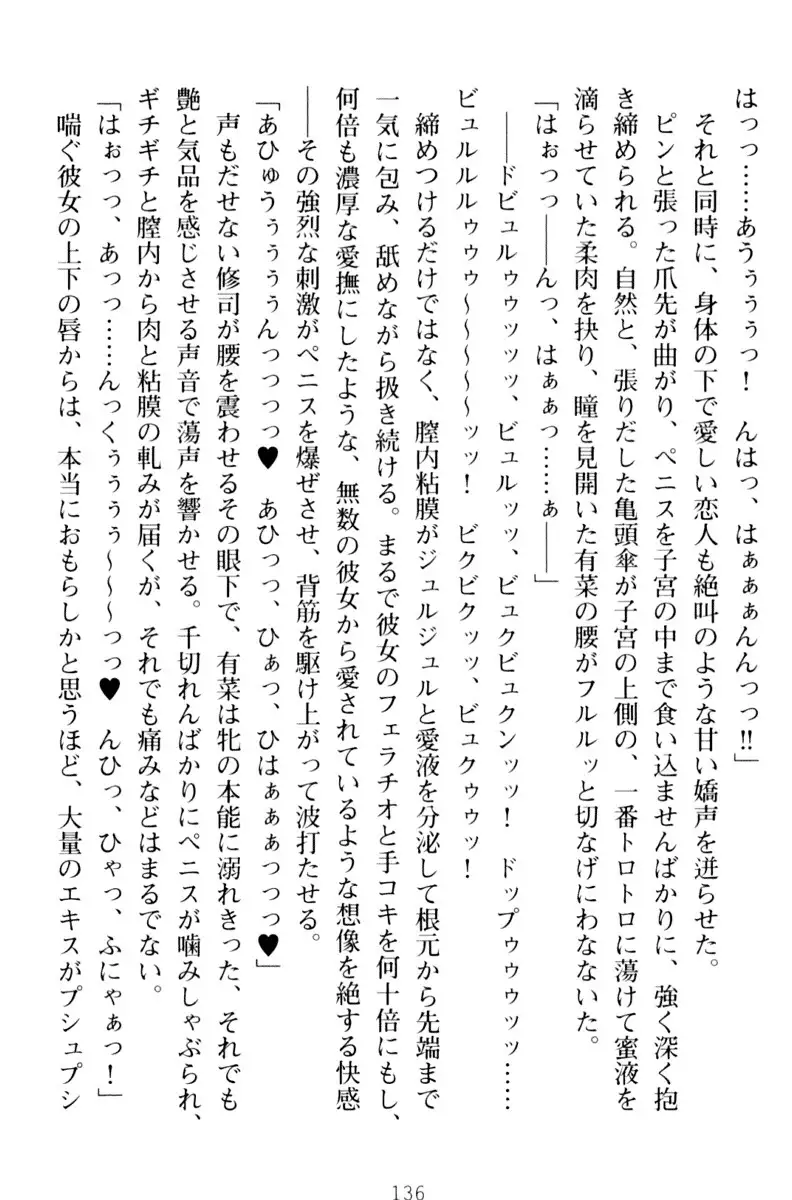 はっっ……あうぅぅぅっ！　んはっ、はぁぁぁんんっっ!!」
それと同時に、身体の下で愛しい恋人も絶叫のような甘い嬌声を迸らせた。
ピンと張った爪先が曲がり、ペニスを子宮の中まで食い込ませんばかりに、強く深く抱
き締められる。自然と、張りだした亀頭傘が子宮の上側の、一番トロトロに蕩けて蜜液を
滴らせていた柔肉を抉り、瞳を見開いた有菜の腰がフルルッと切なげにわなないた。
「はぉっっ――んっ、はぁぁっ……ぁ――」
――ドビュルゥゥッッッ、ビュルッッ、ビュクビュクンッッ！　ドップゥゥゥッッ……
ビュルルルゥゥゥ～～～～～ッッ！　ビクビクッッ、ビュクゥゥッ！
締めつけるだけではなく、膣内粘膜がジュルジュルと愛液を分泌して根元から先端まで
一気に包み、舐めながら扱き続ける。まるで彼女のフェラチオと手コキを何十倍にもし、
何倍も濃厚な愛撫にしたような、無数の彼女から愛されているような想像を絶する快感
――その強烈な刺激がペニスを爆ぜさせ、背筋を駆け上がって波打たせる。
「あひゅうぅぅぅぅんっっっっ♥　あひっっ、ひぁっっ、ひはぁぁぁっっっ♥」
声もだせない修司が腰を震わせるその眼下で、有菜は牝の本能に溺れきった、それでも
艶と気品を感じさせる声音で蕩声を響かせる。千切れんばかりにペニスが噛みしゃぶられ、
ギチギチと膣内から肉と粘膜の軋みが届くが、それでも痛みなどはまるでない。
「はぉっっ、あっっ……んっくぅぅぅぅ～～～っっ♥　んひっ、ひゃっ、ふにゃぁっ！」
喘ぐ彼女の上下の唇からは、本当におもらしかと思うほど、大量のエキスがプシュプシ
136